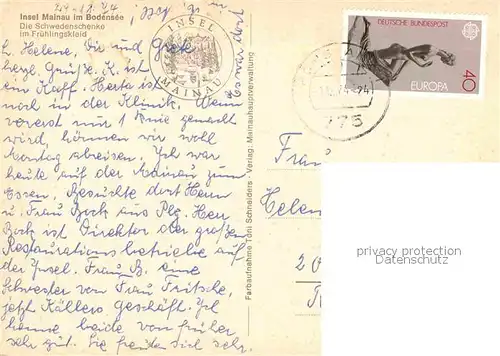 24.-12.74
Insel Mainau im Bodensee
Die Schwedenschenke
im Frühlingskleid
INSEL
MAINAU
L. Helene, Dir und Grete
herzl. Grüße. K. ist
im Kaff. Herta ist
noch in der Klinik. Wenn
vorerst nur 1 Knie gemacht
wird, können wir wohl
Montag abreisen. Ich war
heute auf der Mainau zum
Essen. Besuchte dort Herrn
u. Frau Bock aus Plg. Herr
Bock ist Direktor der großen
Restaurationsbetriebe auf
der Insel. Frau B. eine
Schwester von Frau Fritsche,
jetzt Källers Geschäft. Ich
kenne beide von früher
sehr gut. Sie freuden sich sehr.
Farbaufnahme Toni Schneiders - Verlag: Mainauhauptverwaltung
DEUTSCHE BUNDESPOST
EUROPA
40
775
Frau
Helen
20
privacy protection
Datenschutz